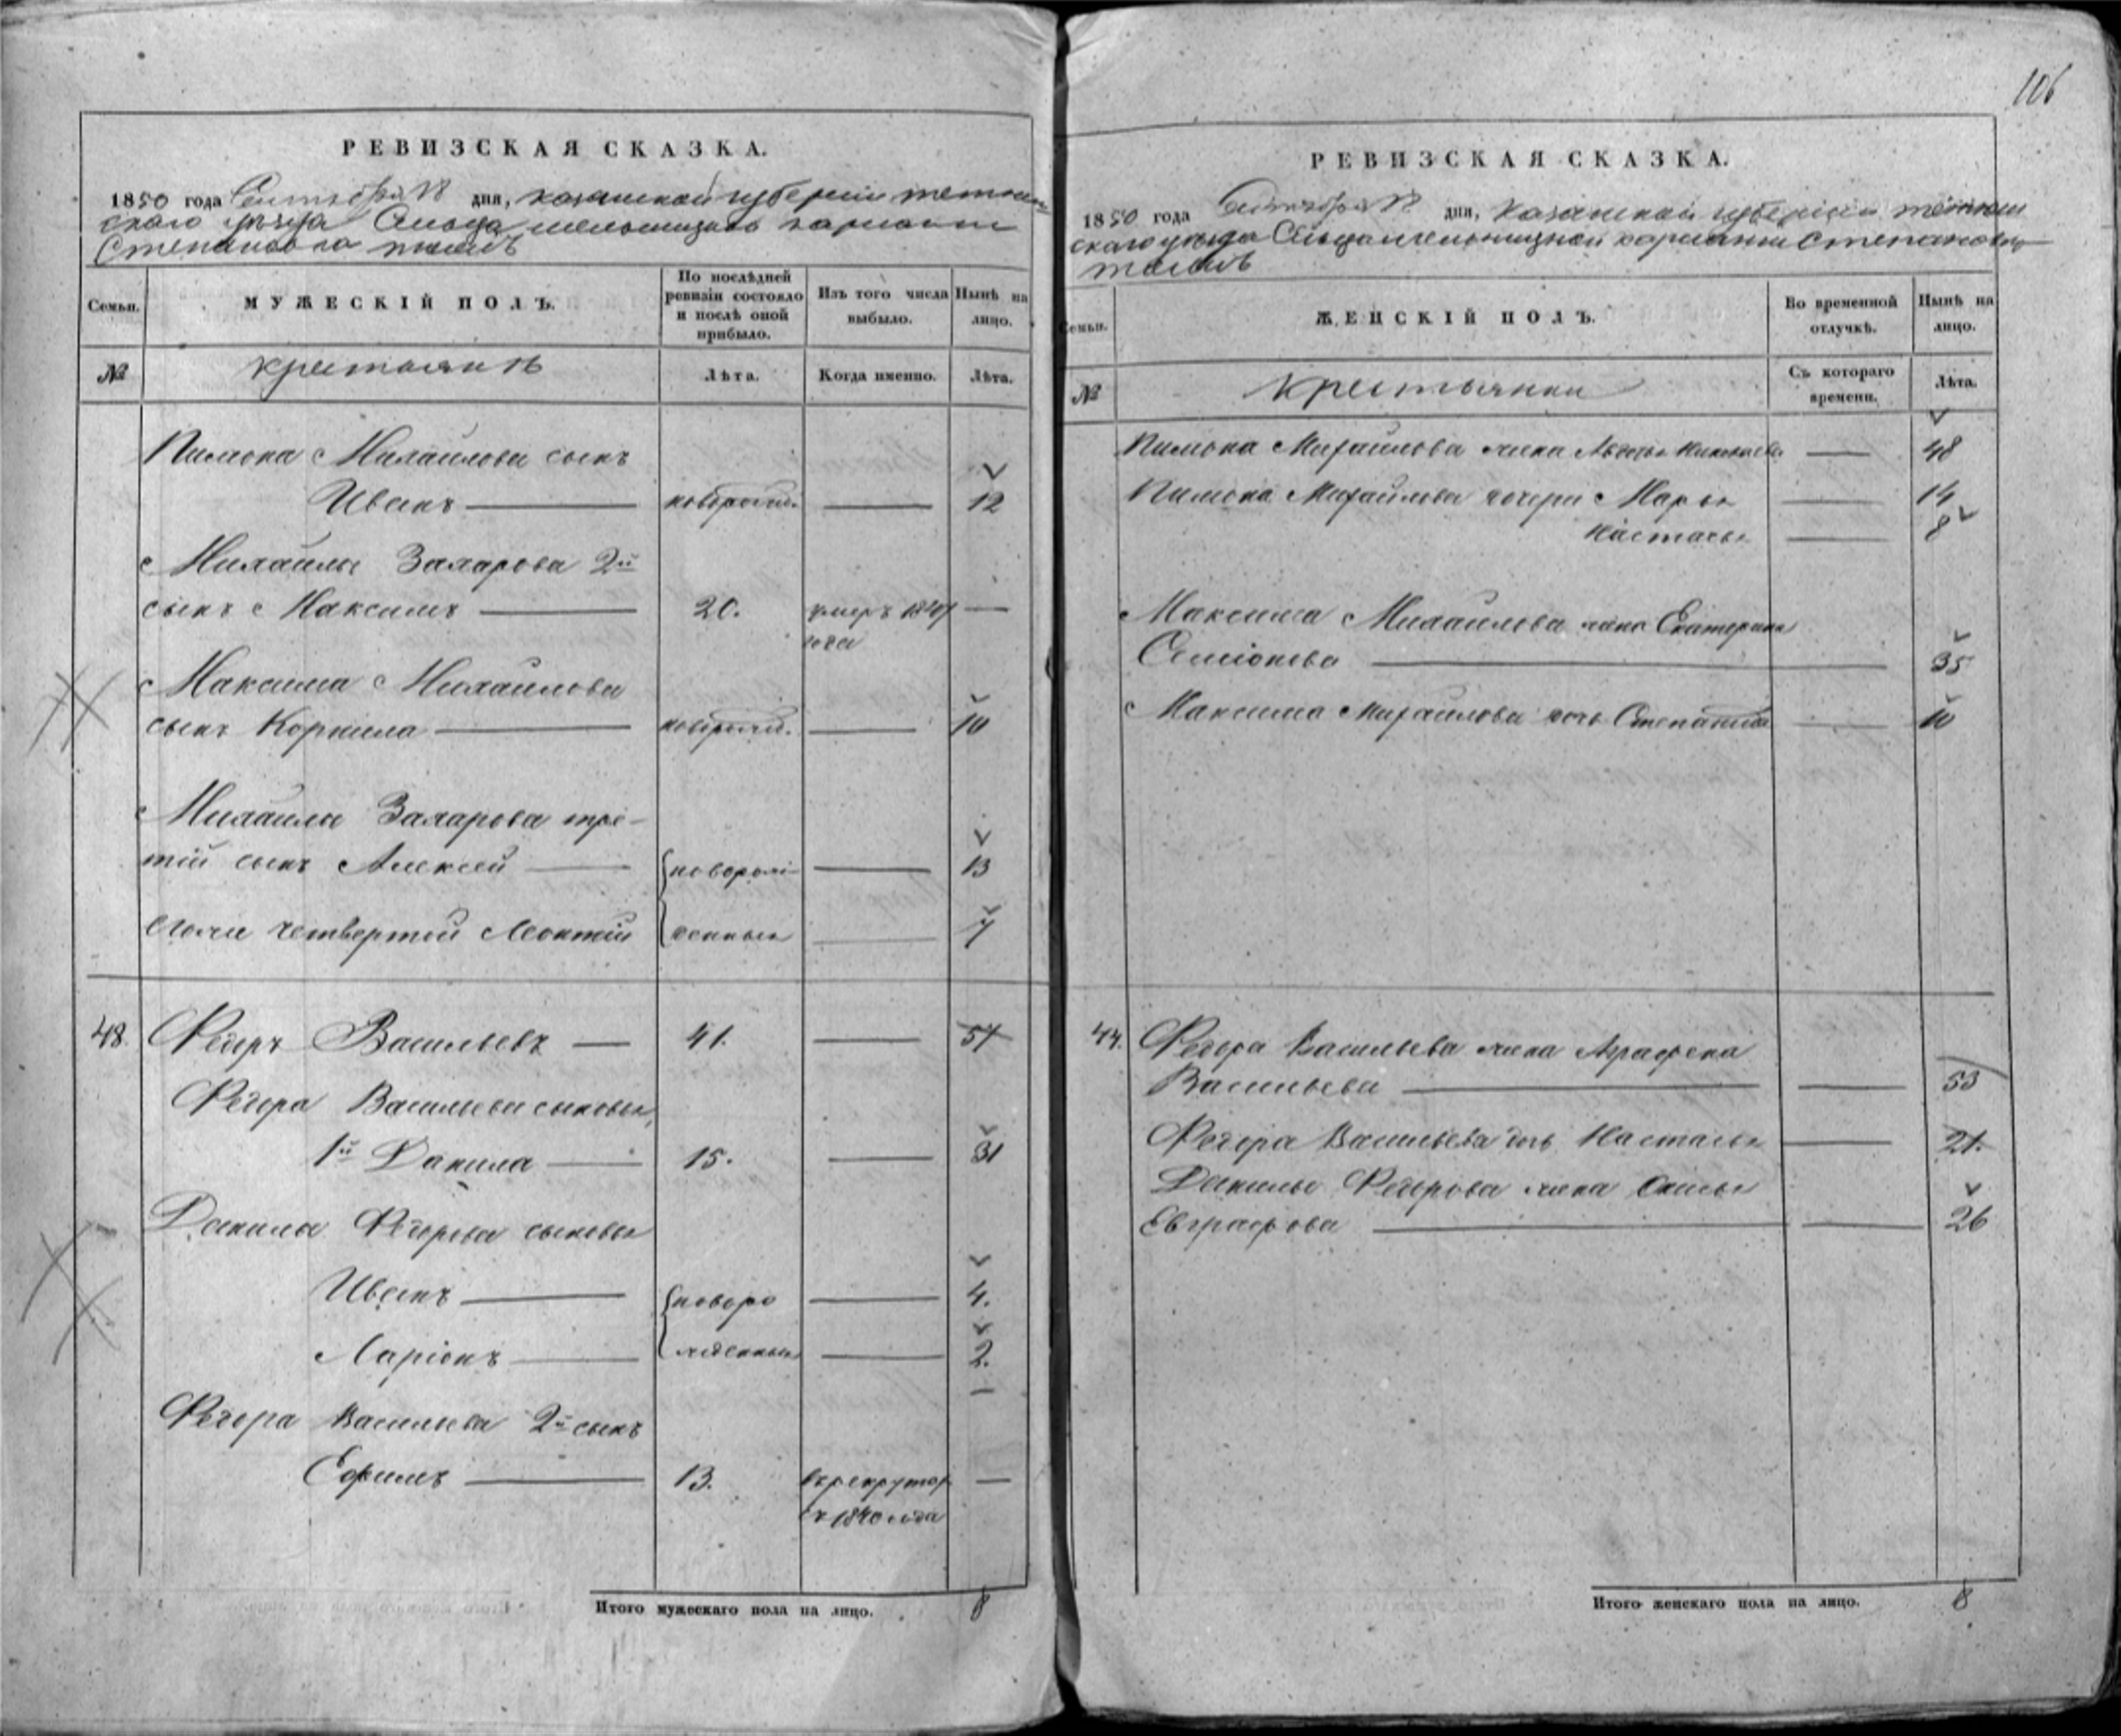 106
РЕВИЗСКАЯ СКАЗКА.
1850 года дня, казанской губерніи
скаго уѣзда
Степановка тожъ
Семьи.
МУЖЕСКІЙ ПОЛЪ.
По послѣдней ревизіи состояло и послѣ оной прибыло.
Изъ того числа выбыло.
Нынѣ на лицо.
№
крестьянъ
Лѣта.
Когда именно.
Лѣта.
Пимона Михайлова сынъ
Иванъ новорожд. 12
Михайлы Захарова 2й
сынъ Максимъ 20. умеръ
года
Максима Михайлова
сынъ Корнила новорожд. 10
Михайлы Захарова тре-
тій сынъ Алексей новорож- 13
четвертой Леонтій денные 7
48. Федоръ Васильевъ 41. 57
Федора Васильева сыновья,
1й Данила 15. 31
Данила Федорова сыновья
Иванъ новоро 4.
Ларіонъ жденные 2.
Федора Васильева 2й сынъ
Ефимъ 13. въ рекрутах
съ 1840 года
Итого мужескаго пола на лицо. 8
РЕВИЗСКАЯ СКАЗКА.
1850 года дня, казанской губерніи
скаго уѣзда
тожъ
Семьи.
ЖЕНСКІЙ ПОЛЪ.
Во временной отлучкѣ.
Нынѣ на лицо.
№
крестьянки
Съ котораго времени.
Лѣта.
Пимона Михайлова жена Авдотья 48
Пимона Михайлова дочери Марья 14
Настасья 8
Максима Михайлова жена Екатерина
Семіонова 35
Максима Михайлова дочь Степанида 10
Федора Васильева жена Аграфена
Васильева 53
Федора Васильева дочь Настасья 21.
Данилы Федорова жена
Евграфова 26
Итого женскаго пола на лицо. 8